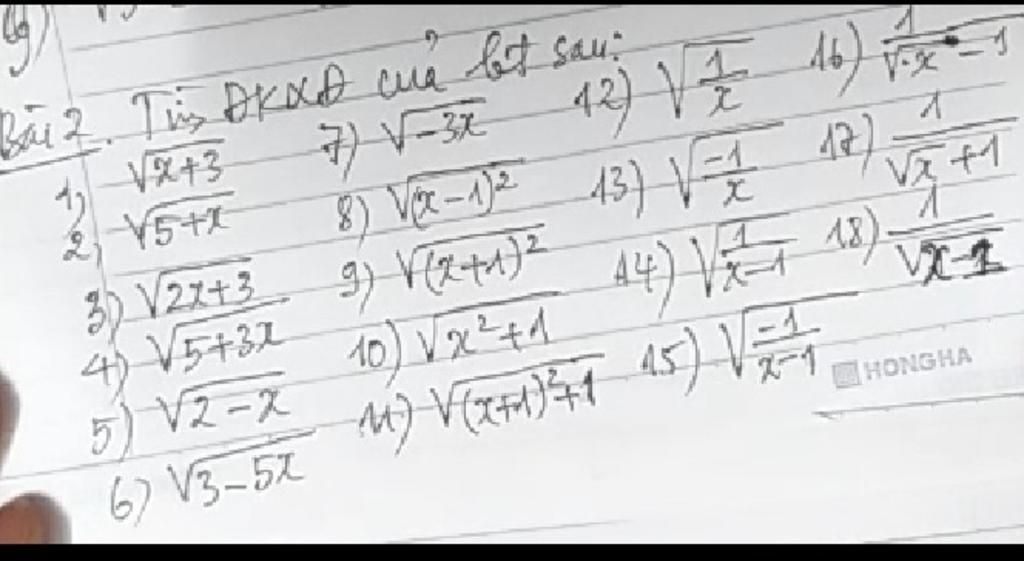 Bài 2. Tìm ĐKXĐ của bt sau:
1) √(x+3)
2) √(5+x)
3) √(2x+3)
4) √(5+3x)
5) √(2-x)
6) √(3-5x)
7) √(-3x)
8) √((x-1)²)
9) √((x+1)²)
10) √(x²+1)
11) √((x+1)²+1)
12) √(1/x)
13) √(-1/x)
14) √(1/(x-1))
15) √(-1/(x-1))
16)
17) 1/(√x+1)
18)
HONGHA